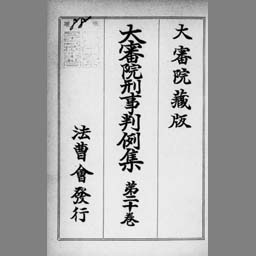 大審院藏版
大審院刑事判例集 第二十卷
法曹會發行